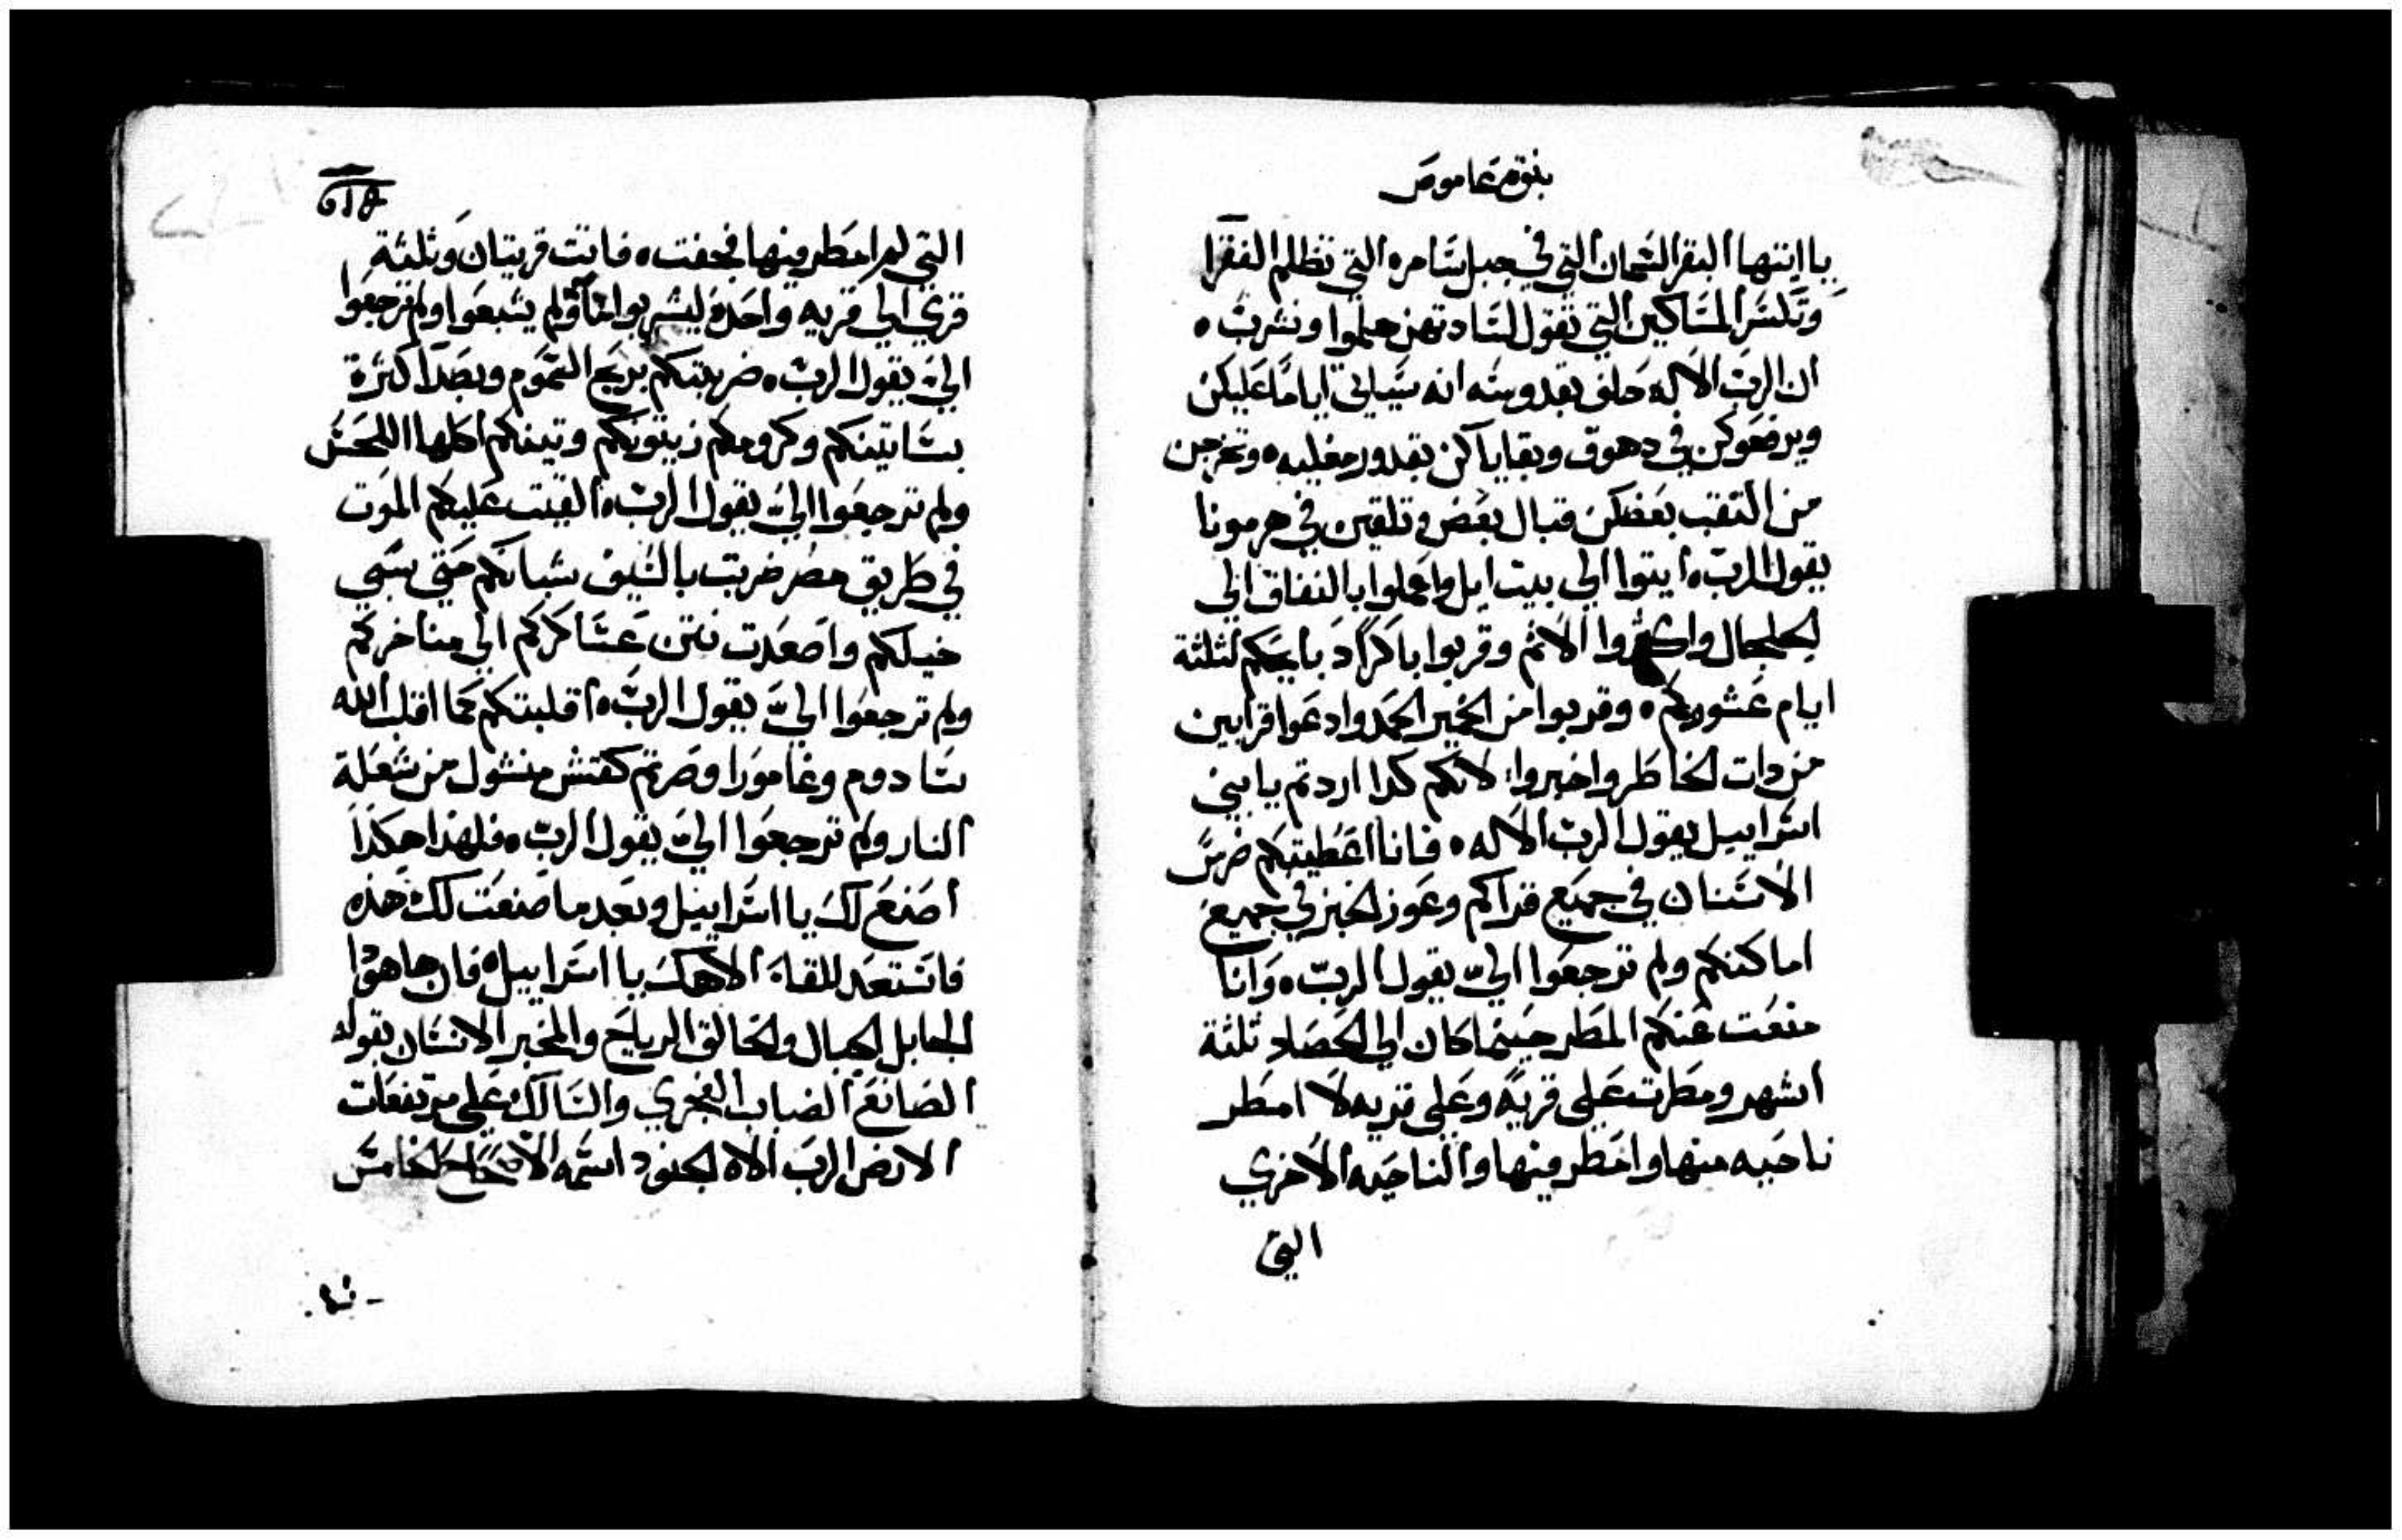 بنوة عاموص
يا ايتها البقر السمان التي في جبل سامره التي تظلم الفقرا
وتكسر المساكين التي تقول لسادتهن هلموا ونشرب ه
ان الرب الاله حلف بقدوسه انه سياتي اياما عليكن
ويرفعوكن في دهوق وبقاياكن بقدور مغليه ه وتخرجن
من النقب بعضكن قبال بعض وتلقين في هرمونا
يقول الرب ه ايتوا الي بيت ايل واعملوا بالنفاق الي
الجلجال واكثروا الاثم وقربوا باكرا دبايحكم لثلثة
ايام عشوركم ه وقربوا من الخمير الحمد وادعوا قرابين
من دات الخاطر واخبروا لانكم كدا اردتم يا بني
اسراييل يقول الرب الاله ه فانا اعطيتكم ضرس
الاسنان في جميع قراكم وعوز الخبز في جميع
اماكنكم ولم ترجعوا الي يقول الرب ه وانا
منعت عنكم المطر حينما كان الي الحصاد ثلثة
اشهر ومطرت علي قرية وعلي قريه لا امطر
ناحيه منها وامطر فيها والناحيه الاخري
التي
التي لم امطر فيها فجفت ه فاتت قريتان وثلثة
قري الي قريه واحدة ليشربوا مآ ولم يشبعوا ولم ترجعوا
الي يقول الرب ه ضربتكم بريح السموم وبصدا كثرة
بساتينكم وكرومكم زيتونكم وتينكم اكلها اللحس
ولم ترجعوا الي يقول الرب ه القيت عليكم الموت
في طريق مصر ضربت بالسيف شبانكم حتي سبي
خيلكم واصعدت نتن عساكركم الي مناخركم
ولم ترجعوا الي يقول الرب ه اقلبتكم كما اقلب الله
سادوم وغامورا وصرتم كقش منشول من شعلة
النار ولم ترجعوا الي يقول الرب ه فلهذا هكذا
اصنع لك يا اسراييل وبعد ما صنعت لك هذه
فاستعد للقاء الاهك يا اسراييل ه فان ها هوا
الجابل الجبال والخالق الرياح والمخبر الانسان بقوله
الصانع الضباب الفجري والسالك علي مرتفعات
الارض الرب الاه الجنود اسمه الاصحاح الخامس